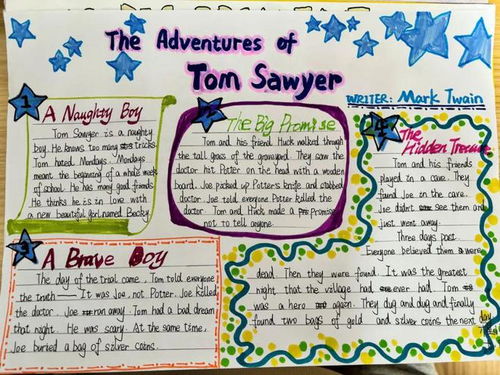 The Adventures of
Tom Sawyer
WRITER: Mark Twain
1
A Naughty Boy
Tom Sawyer is a naughty
boy. He knows too many tricks.
Tom hated Mondays. Mondays
meant the beginning of a whole week
of school. He has many good friends
He thinks he is in love with
a new beautiful girl named Becky.
2
The Big Promise
Tom and his friend Huck walked through
the tall grass of the graveyard. They saw the
doctor hit Potter on the head with a wooden
board. Joe picked up Potter's knife and stabbed
doctor. Joe told everyone Potter killed the
doctor. Tom and Huck made a promise
not to tell anyone.
3
A Brave Boy
The day of the trial came. Tom told everyone
the truth — It was Joe, not Potter. Joe killed
the doctor. Joe ran away. Tom had a bad dream
that night. He was scary. At the same time,
Joe buried a bag of silver coins.
4
The
Hidden Treasure
Tom and his friends
played in a cave. They
found Joe in the cave.
Joe didn't see them and
just went away.
Three days past.
Everyone believed them were
dead. Then they were found. It was the greatest
night that the village had ever had. Tom
was a hero again. They dug and dug and finally
found two bags of gold and silver coins the next day